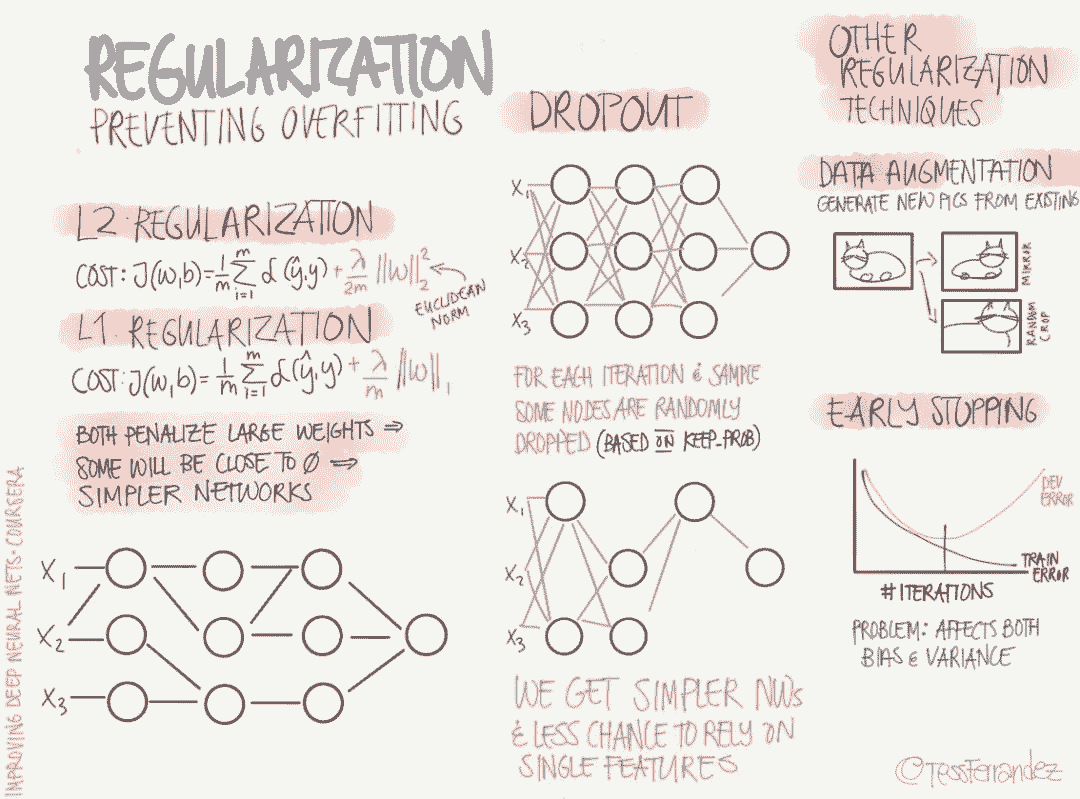 REGULARIZATION
PREVENTING OVERFITTING
L2 REGULARIZATION
COST: J(w,b) = 1/m Σ_{i=1}^{m} L(ŷ,y) + λ/2m ||w||₂²
EUCLIDEAN
NORM
L1 REGULARIZATION
COST: J(w,b) = 1/m Σ_{i=1}^{m} L(ŷ,y) + λ/m ||w||₁
BOTH PENALIZE LARGE WEIGHTS ⇒
SOME WILL BE CLOSE TO Ø ⇒
SIMPLER NETWORKS
X₁
X₂
X₃
IMPROVING DEEP NEURAL NETS - COURSERA
DROPOUT
X₁
X₂
X₃
FOR EACH ITERATION & SAMPLE
SOME NODES ARE RANDOMLY
DROPPED (BASED ON KEEP_PROB)
X₁
X₂
X₃
WE GET SIMPLER NWs
& LESS CHANCE TO RELY ON
SINGLE FEATURES
OTHER
REGULARIZATION
TECHNIQUES
DATA AUGMENTATION
GENERATE NEW PICS FROM EXISTING
MIRROR
RANDOM
CROP
EARLY STOPPING
DEV
ERROR
TRAIN
ERROR
# ITERATIONS
PROBLEM: AFFECTS BOTH
BIAS & VARIANCE
@TessFerrandez